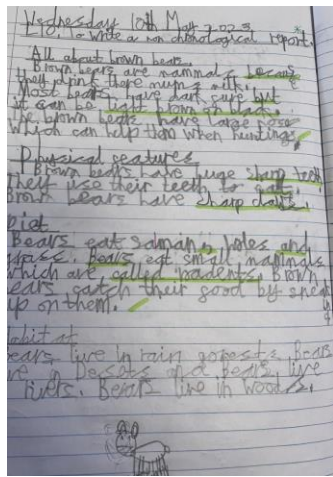 Wednesday 10th May 2023
L.O. To write a non chronological report.
All about brown bears
Brown bears are mammals becase
they drink there mum's milk.
Most bears have dark fure but
it can be light brown or black.
The brown bears have large nose
which can help them when hunting.
Physical features
Brown bears have huge sharp teeth
They use their teeth to eat.
Brown bears have sharp claws.
Diet
Bears eat salman, and
grass. Bears eat small
which are called rodents. Brown
ears catch their food by
up on them.
abitat
ears live in rain forests. Bears
ve in and bears live
rivers. Bears live in woods.